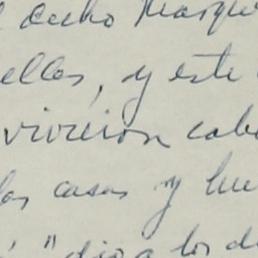 dicho Marqu
ellos, y este
vivieron cab
las casas y hue
" dio a los d